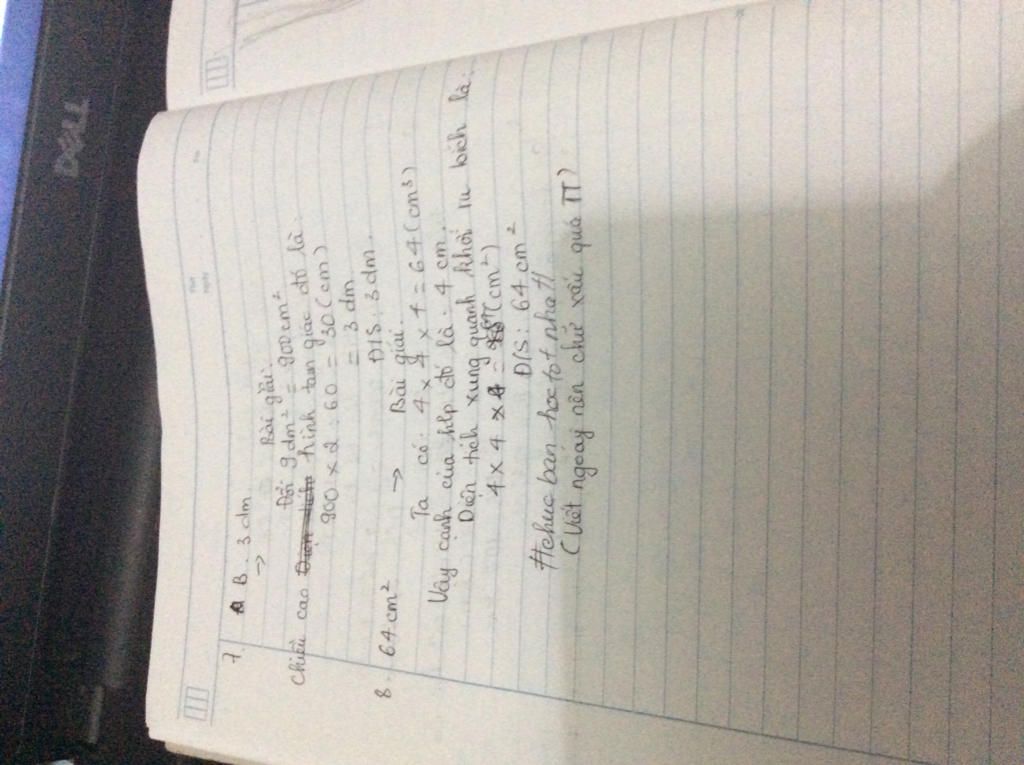 DELL
7. B. 3 dm
→ Bài giải:
Đổi 9 dm² = 900 cm²
Chiều cao hình tam giác đó là:
900 × 2 : 60 = 30 (cm)
= 3 dm
Đ/S: 3 dm.
8. 64 cm² → Bài giải.
Ta có: 4 × 4 × 4 = 64 (cm³)
Vậy cạnh của hlp đó là: 4 cm.
Diện tích xung quanh khối ru bích là:
4 × 4 × 4 = 64 (cm²)
Đ/S: 64 cm²
#chuc ban hoc tot nha!!
(Viết ngoáy nên chữ xấu quá TT)